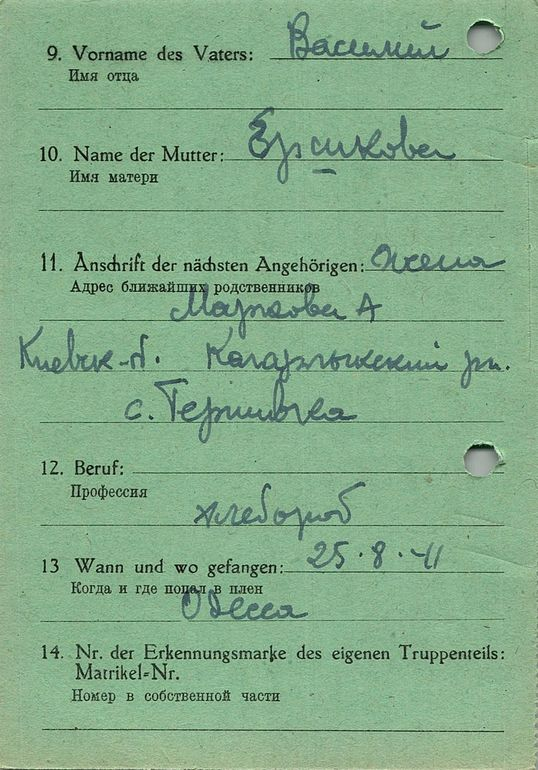 9. Vorname des Vaters: Василий
Имя отца
10. Name der Mutter:
Имя матери
11. Anschrift der nächsten Angehörigen: жена
Адрес ближайших родственников
Маркова А
Киевск-о. Кагарлыкский рн.
с.
12. Beruf:
Профессия
хлебороб
13 Wann und wo gefangen: 25·8·41
Когда и где попал в плен
Одесса
14. Nr. der Erkennungsmarke des eigenen Truppenteils:
Matrikel-Nr.
Номер в собственной части